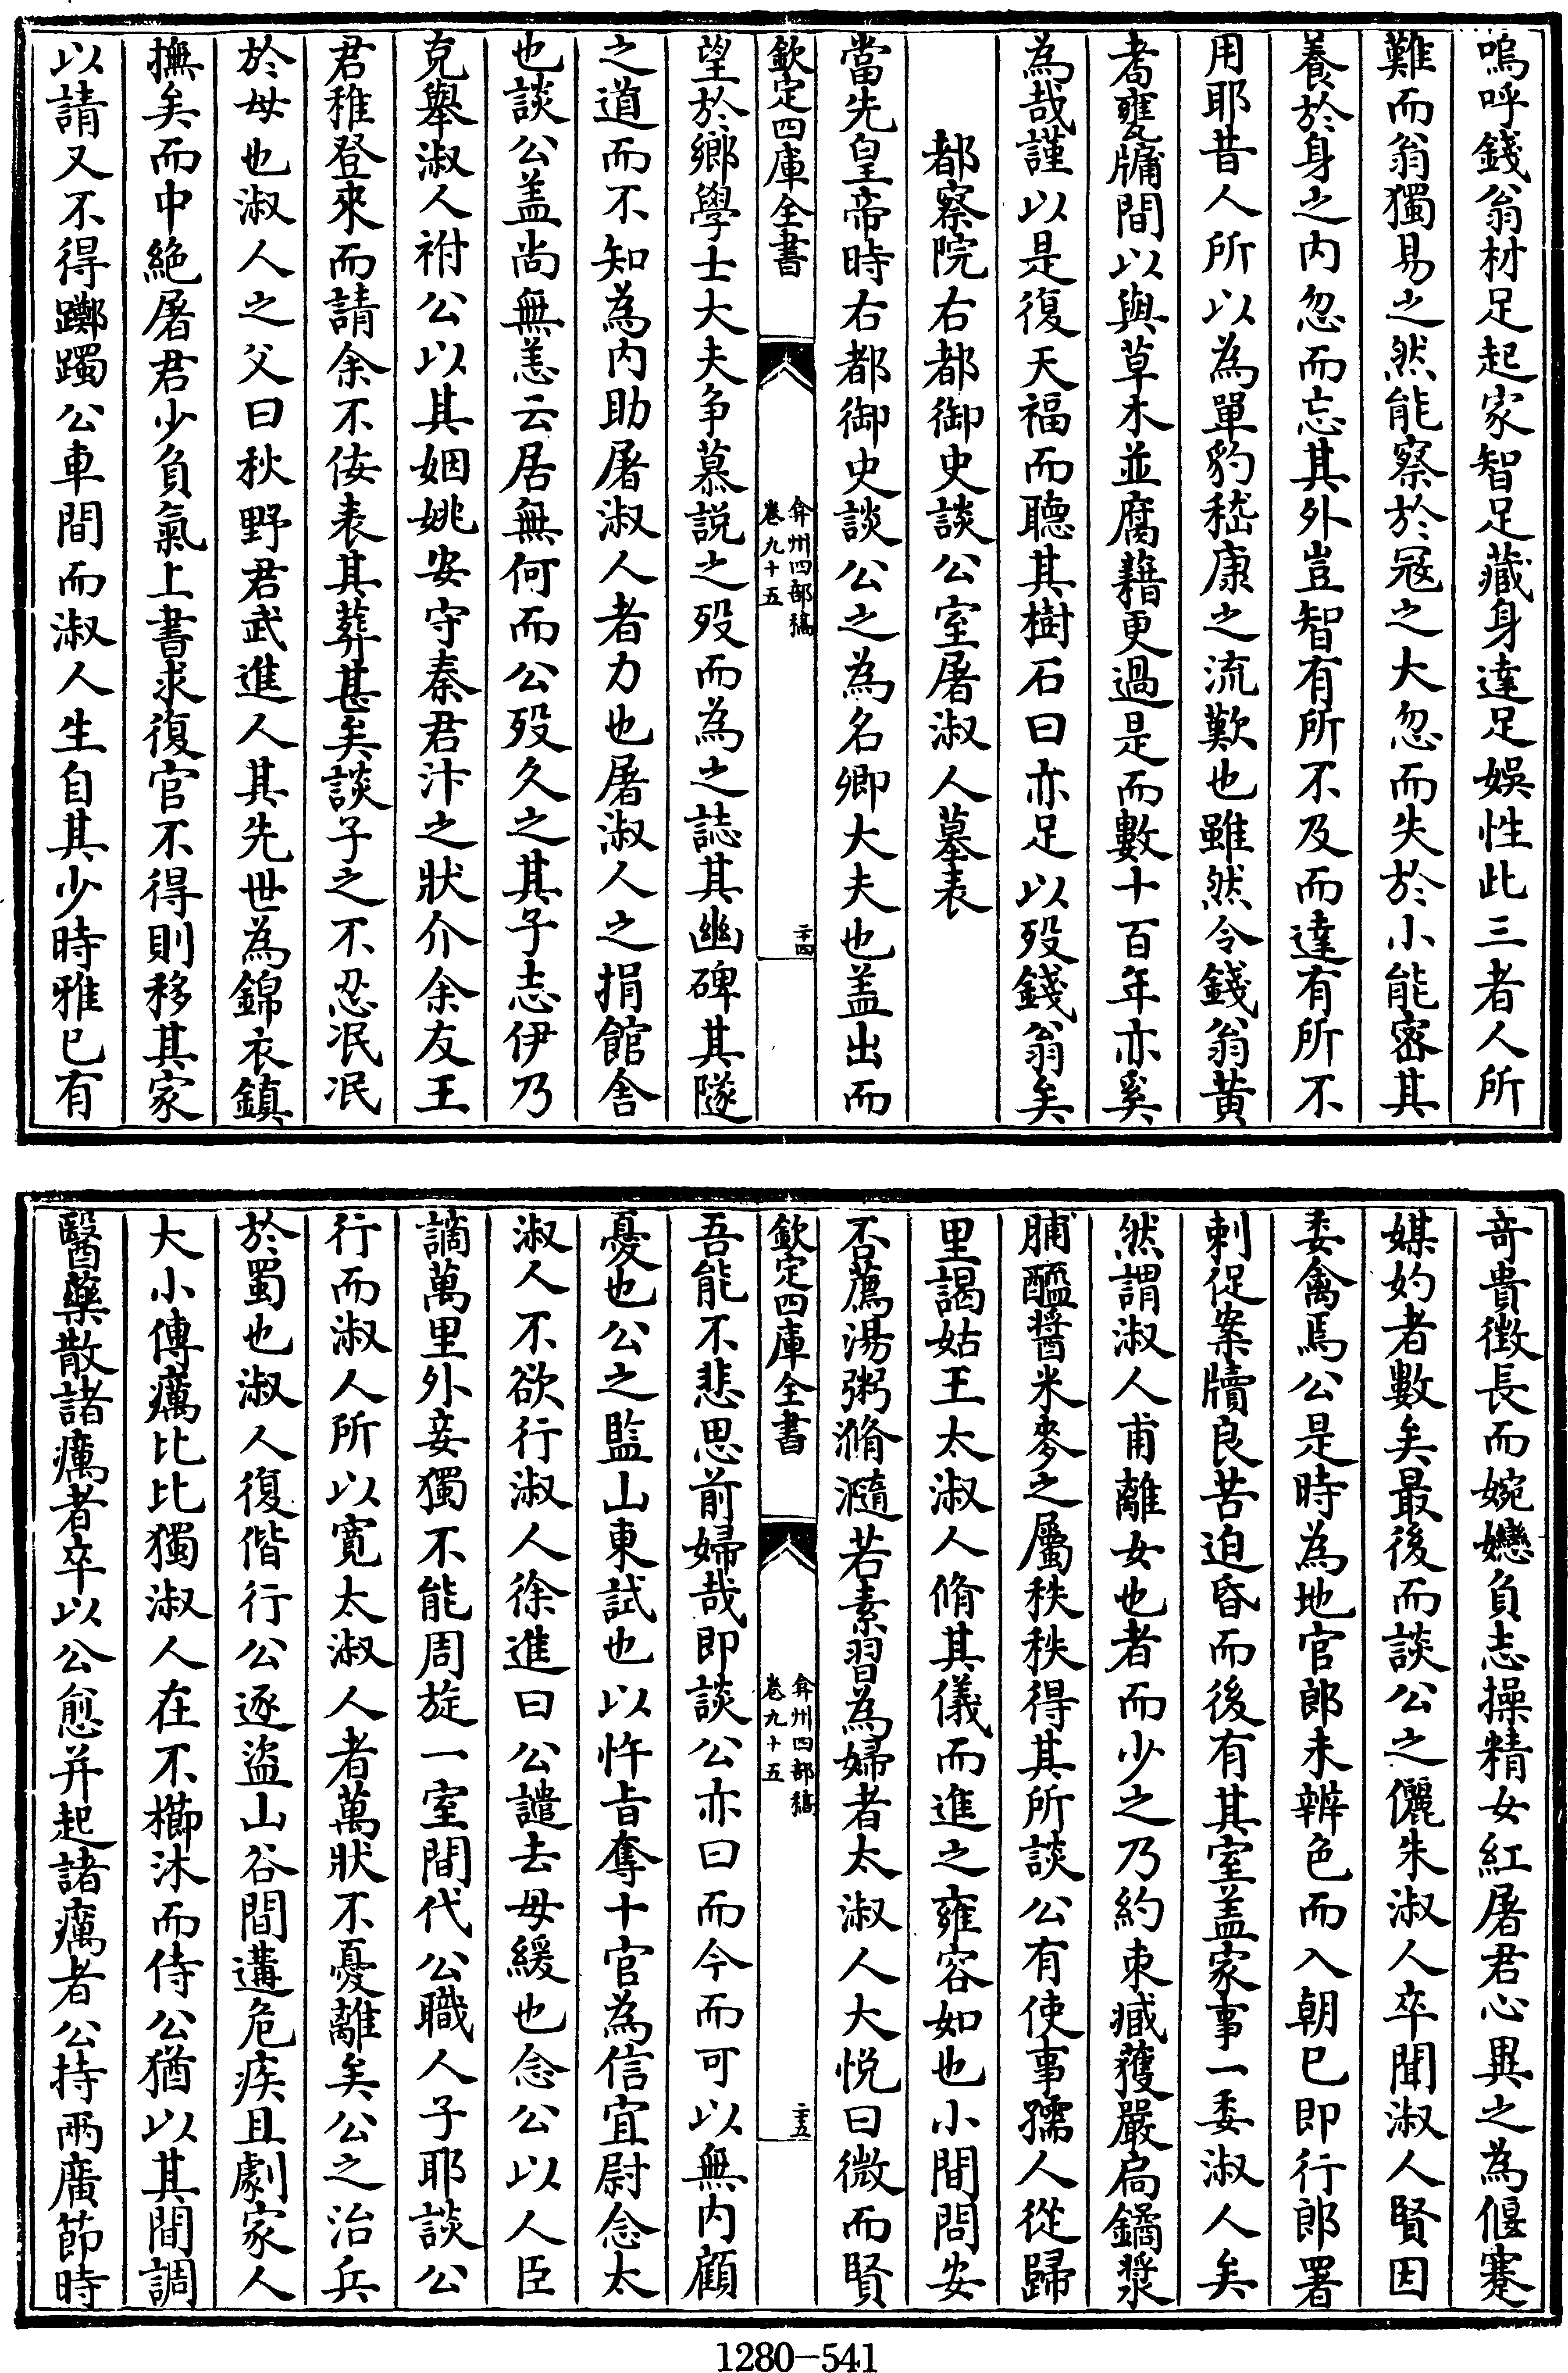 嗚呼錢翁材足起家智足藏身達足娛性此三者人所
難而翁獨易之然能察於寇之大忽而失於小能密其
養於身之内忽而忘其外豈智有所不及而達有所不
用耶昔人所以為單豹嵇康之流歎也雖然令錢翁黄
耇甕牖間以與草木並腐藉更過是而數十百年亦奚
為哉謹以是復天福而聽其樹石曰亦足以歿錢翁矣
都察院右都御史談公室屠淑人墓表
當先皇帝時右都御史談公之為名卿大夫也盖出而
欽定四庫全書
弇州四部稿
卷九十五
二十四
望於鄉學士大夫争慕説之歿而為之誌其幽碑其隧
之道而不知為内助屠淑人者力也屠淑人之捐館舍
也談公盖尚無恙云居無何而公歿久之其子志伊乃
克舉淑人祔公以其姻姚安守秦君汴之狀介余友王
君稚登來而請余不佞表其葬甚矣談子之不忍泯泯
於母也淑人之父曰秋野君武進人其先世為錦衣鎮
撫矣而中絶屠君少負氣上書求復官不得則移其家
以請又不得躑躅公車間而淑人生自其少時雅已有
奇貴徵長而婉孌負志操精女紅屠君心異之為偃蹇
媒妁者數矣最後而談公之儷朱淑人卒聞淑人賢因
委禽焉公是時為地官郎未辨色而入朝已即行郎署
刺促案牘良苦迫昏而後有其室盖家事一委淑人矣
然謂淑人甫離女也者而少之乃約束臧獲嚴扃鐍漿
脯醯醬米麥之屬秩秩得其所談公有使事孺人從歸
里謁姑王太淑人脩其儀而進之雍容如也小間問安
否薦湯粥滫瀡若素習為婦者太淑人大悦曰微而賢
欽定四庫全書
弇州四部稿
卷九十五
二十五
吾能不悲思前婦哉即談公亦曰而今而可以無内顧
憂也公之監山東試也以忤旨奪十官為信宜尉念太
淑人不欲行淑人徐進曰公譴去母緩也念公以人臣
謫萬里外妾獨不能周旋一室間代公職人子耶談公
行而淑人所以寛太淑人者萬狀不憂離矣公之治兵
於蜀也淑人復偕行公逐盗山谷間遘危疾且劇家人
大小傳癘比比獨淑人在不櫛沐而侍公猶以其間調
醫藥散諸癘者卒以公愈并起諸癘者公持兩廣節時
1280-541